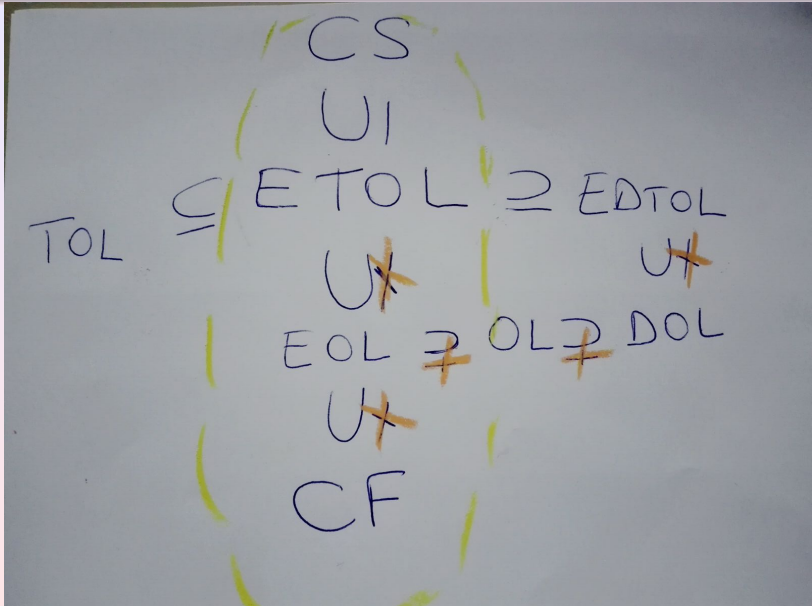 CS
UI
TOL ⊆ ETOL ⊇ EDTOL
U+ U+
EOL ⊋ OL ⊋ DOL
U+
CF